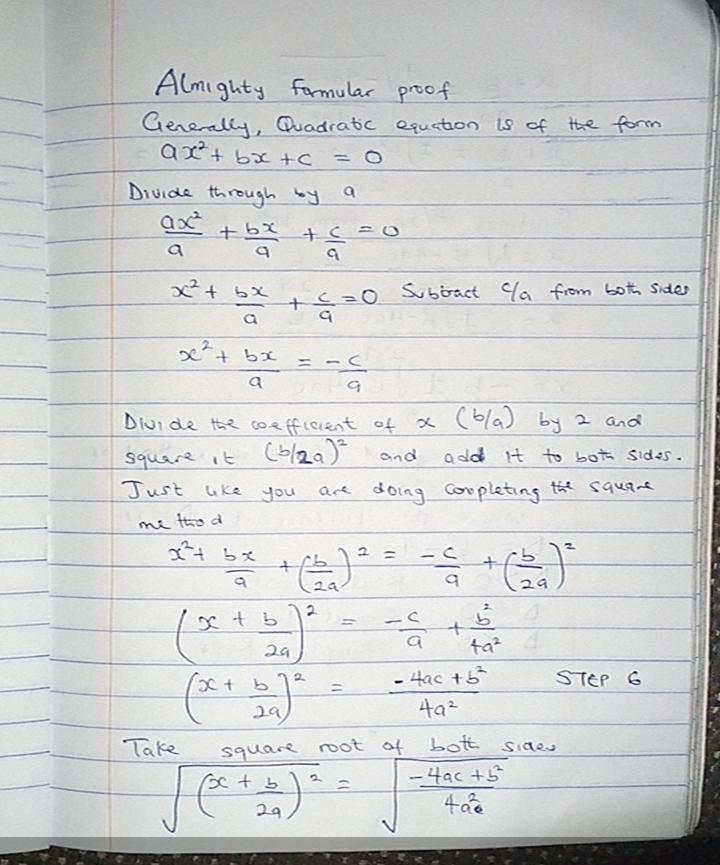 Almighty formular proof
Generally, Quadratic equation is of the form
ax² + bx + c = 0
Divide through by a
ax²/a + bx/a + c/a = 0
x² + bx/a + c/a = 0 Subtract c/a from both sides
x² + bx/a = -c/a
Divide the coefficient of x (b/a) by 2 and
square it (b/2a)² and add it to both sides.
Just like you are doing completing the square
method
x² + bx/a + (b/2a)² = -c/a + (b/2a)²
(x + b/2a)² = -c/a + b²/4a²
(x + b/2a)² = -4ac + b²/4a² STEP 6
Take square root of both sides
√(x + b/2a)² = √-4ac + b²/4a²